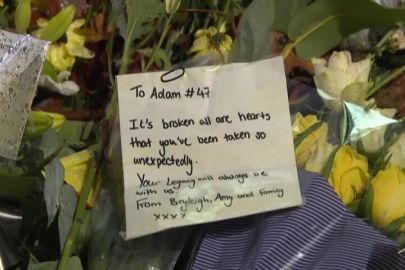 To Adam #47
It's broken all are hearts
that you've been taken so
unexpectedly.
Your Legacy will always be
with us.
From Bryleigh, Amy and Family
xxxx